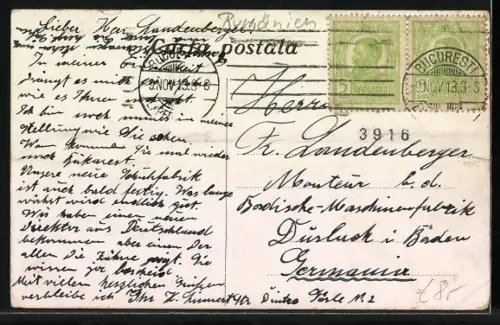 Lieber Herr Landenberger!
Rumänien
Carta postala
In meiner
drängt es mich
wie es Ihnen
Ich bin noch immer in meiner
Stellung wie Sie sehen.
Wann kommen Sie mal wieder
nach Bukarest.
Unsere neue Schuhfabrik
ist auch bald fertig. Was lange
währt wird endlich gut.
Wir haben einen neuen
Direktor aus Deutschland
bekommen aber einen Der
allen die Zähne zeigt. Sie
wissen ja bescheid.
Mit vielen herzlichen Grüßen
verbleibe ich Ihr
BUCURESTI
9.NOV.13.3-8
BUCURESTI
9.NOV.13.3-8
Herrn
3916
Fr. Landenberger
Monteur b. d.
Badische-Maschinenfabrik
Durlach i Baden
Germania